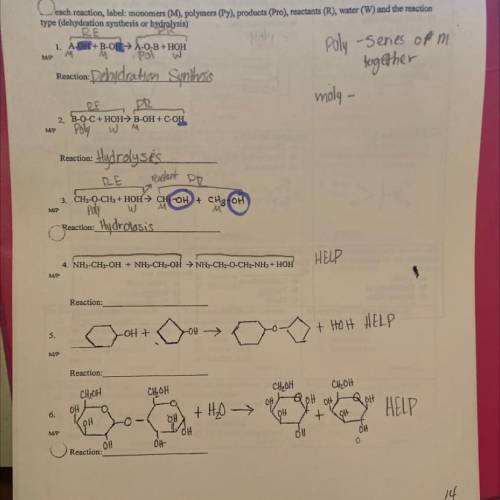 each reaction, label: monomers (M), polymers (Py), products (Pro), reactants (R), water (W) and the reaction
type (dehydration synthesis or hydrolysis)
RE PR
1. A-OH + B-OH → A-O-B + HOH
M/P M M Poly W
Reaction: Dehydration Synthesis
Poly - series of m
together
moly -
RE PR
2. B-O-C + HOH → B-OH + C-OH
M/P Poly W M
Reaction: Hydrolysés
RE PR
3. CH3-O-CH3 + HOH → CH3-OH + CH3-OH
M/P Poly W M M
Reaction: Hydrolosis
4. NH2-CH2-OH + NH2-CH2-OH → NH2-CH2-O-CH2-NH2 + HOH HELP
M/P
Reaction:
5. -OH + -OH → -O- + HOH HELP
M/P
Reaction:
CH2OH CH2OH CH2OH CH2OH
6. OH OH -O- OH OH + H2O → OH OH OH + OH OH OH HELP
M/P OH OH OH OH
Reaction:
14